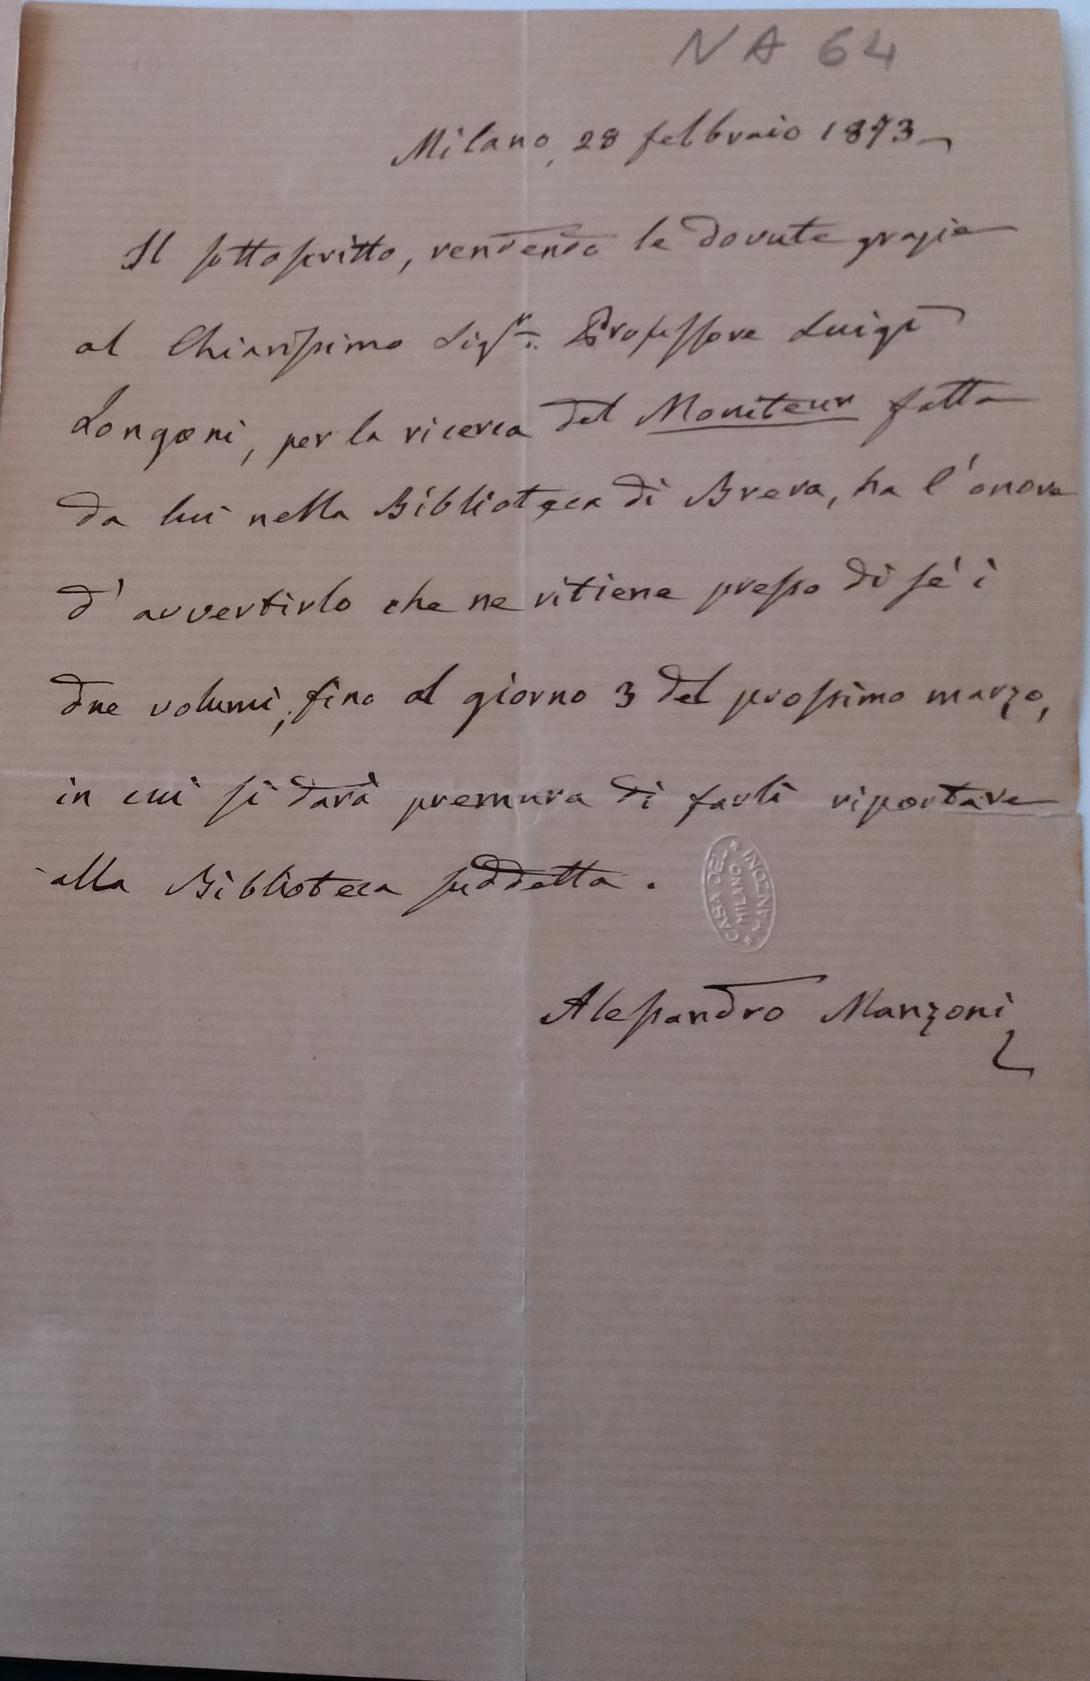 NA 64
Milano, 28 febbraio 1873
Il sottoscritto, rendendo le dovute grazie
al Chiarissimo Sigr. Professore Luigi
Longoni, per la ricerca del Moniteur fatta
da lui nella Biblioteca di Brera, ha l'onore
d'avvertirlo che ne ritiene presso di sé i
due volumi, fino al giorno 3 del prossimo marzo,
in cui si darà premura di farli riportare
alla Biblioteca suddetta.
CASA DEL MANZONI
MILANO
Alessandro Manzoni